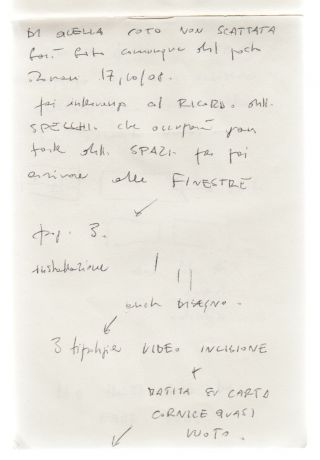 DI QUELLA FOTO NON SCATTATA
comunque del
17/10/08.
poi al RICORDO. degli
SPECCHI. che gran
degli SPAZI per poi
arrivare alle FINESTRE
pag. 3.
installazione
anche DISEGNO.
3 tipologie VIDEO INCISIONE
MATITA SU CARTA
CORNICE QUASI
VUOTO.